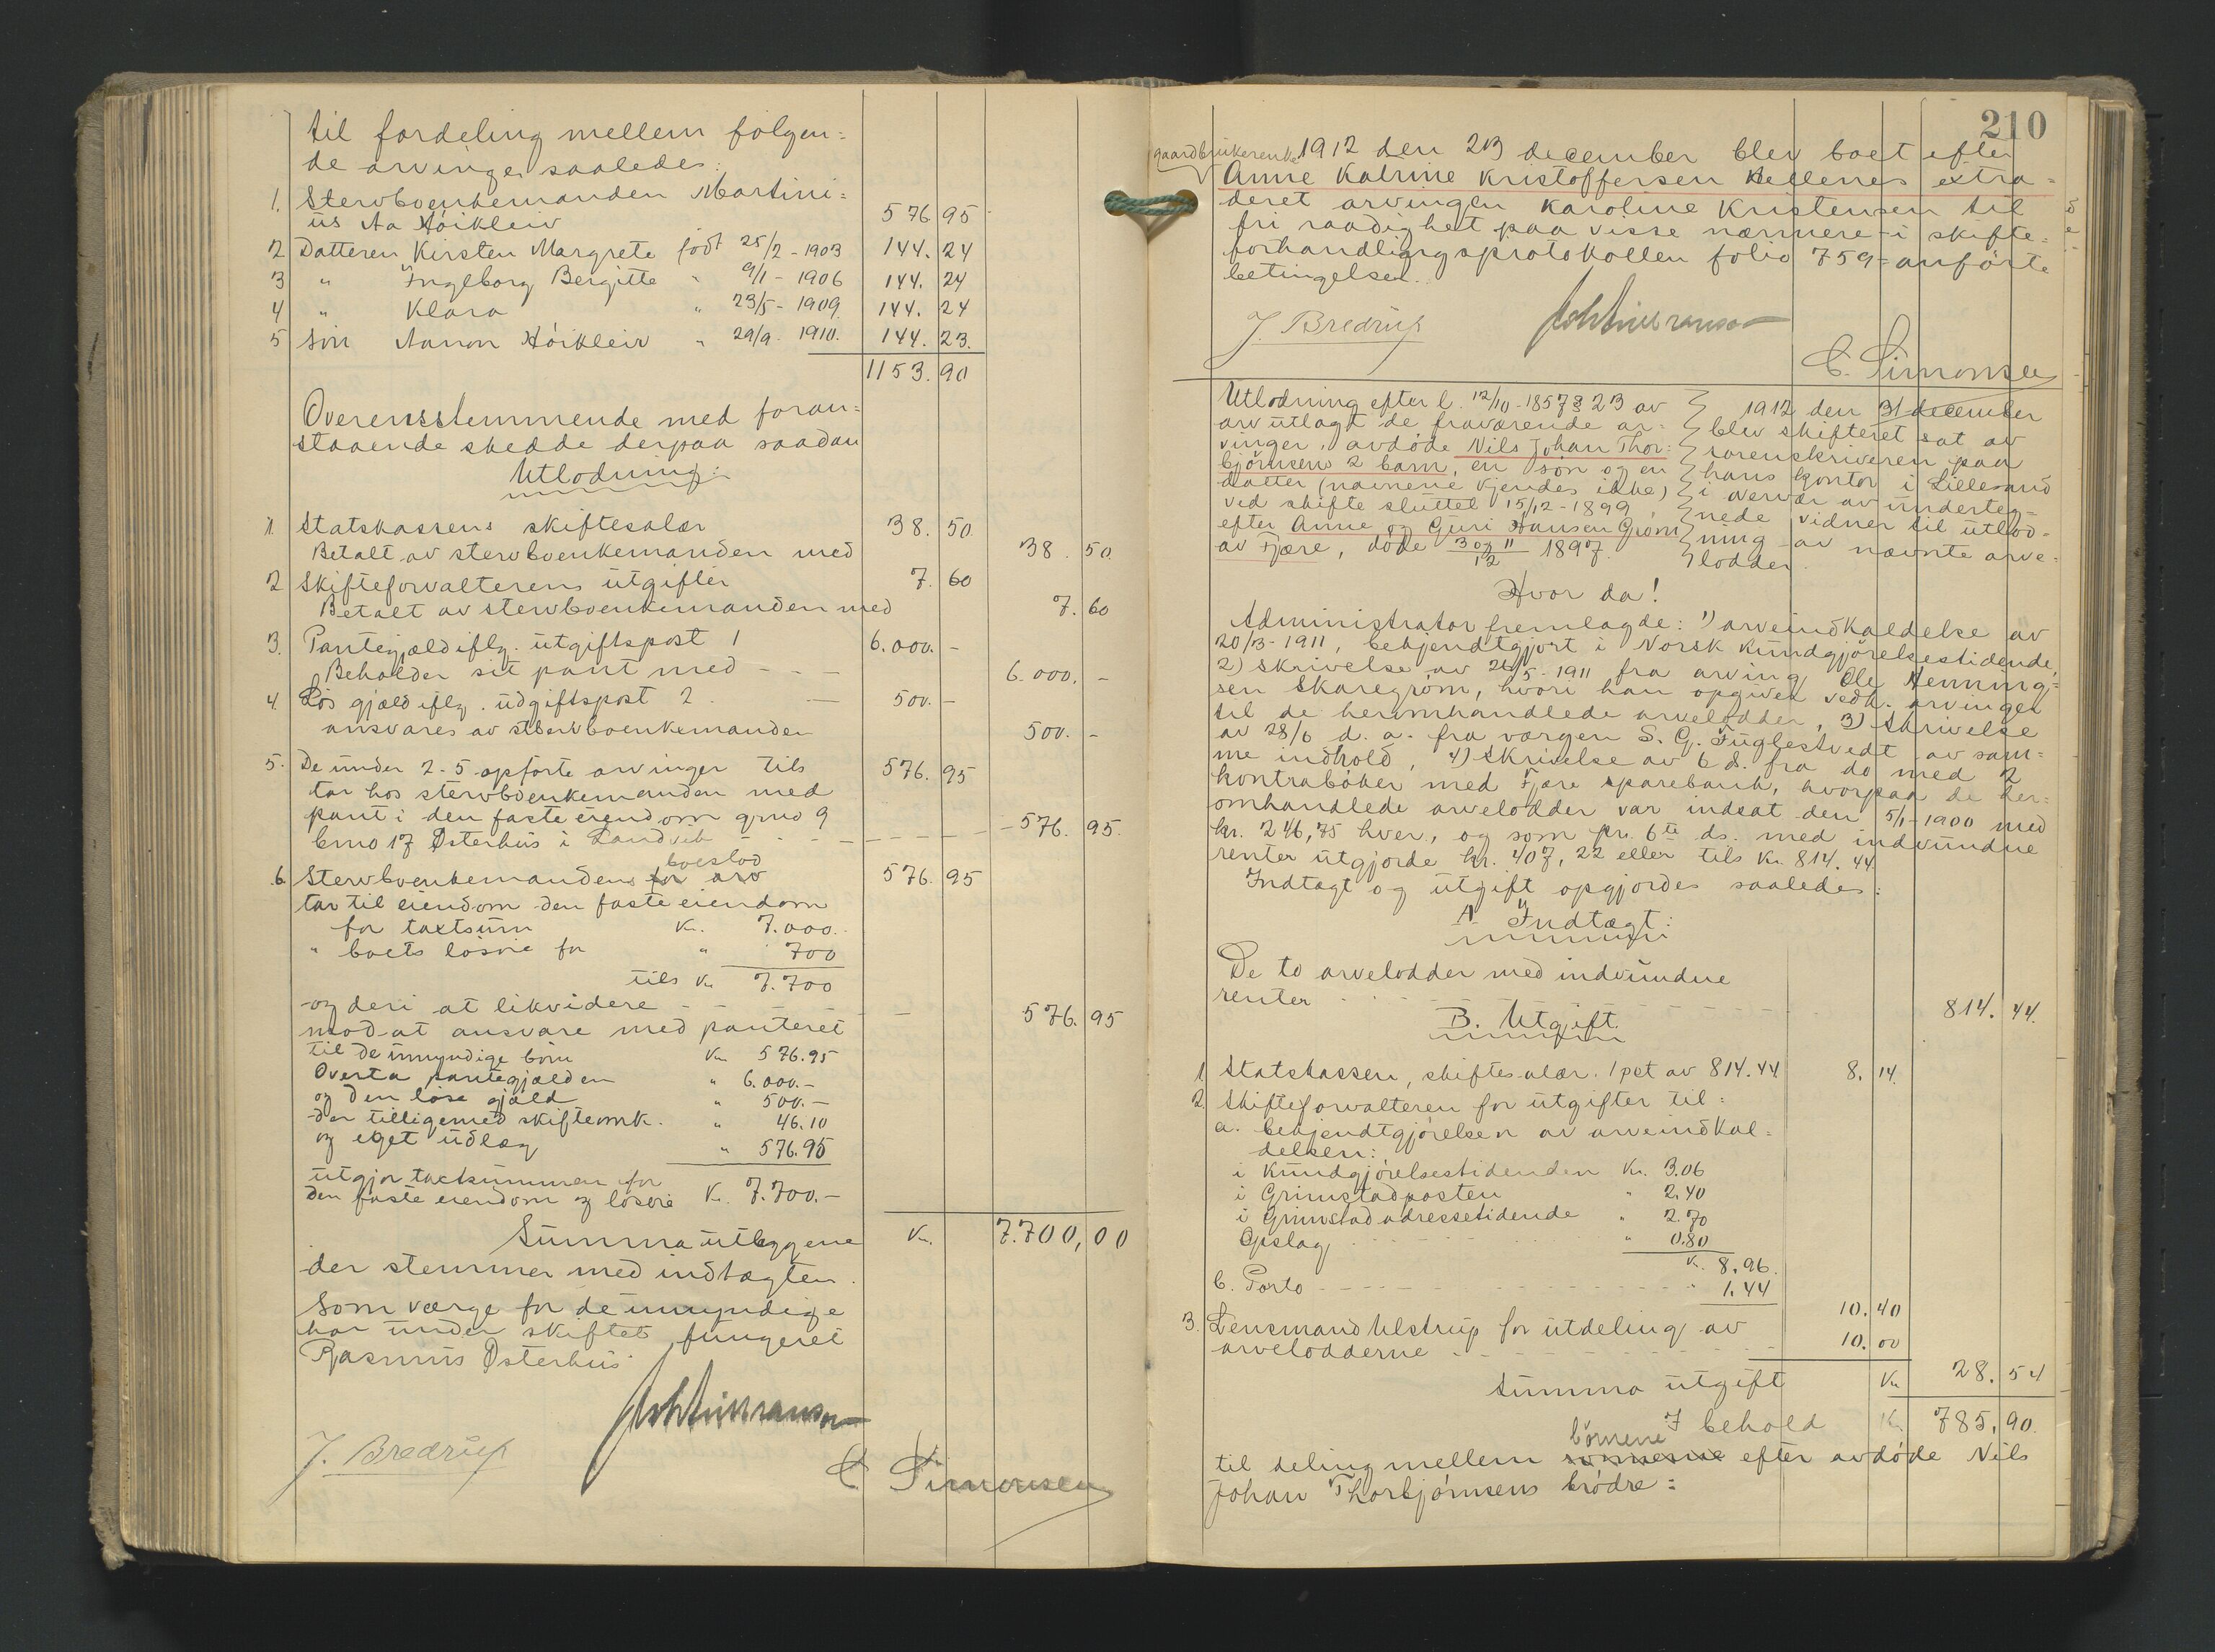 til fordeling mellem følgen=
de arvinger saaledes:
1. Stervboenkemanden Martini=
us Aa Høikleiv 576. 95
2 Datteren Kirsten Margrete født 25/2 - 1903 144. 24
3 " Ingeborg Bergitte " 9/1 - 1906 144. 24
4 " Klara " 23/5 - 1909. 144. 24
5 Søn Aanon Høikleiv " 29/9. 1910. 144. 23.
1153. 90
Overensstemmende med foran=
staaende skedde derpaa saadan
Utlodning:
1. Statskassens skiftesalær 38. 50.
Betalt av stervboenkemanden med 38. 50.
2 Skifteforvalterens utgifter 7. 60
Betalt av stervboenkemanden med 7. 60
3. Pantegjæld iflg. utgiftspost 1 6.000. -
Beholder sit pant med - - - 6.000. -
4. Løs gjæld iflg. udgiftspost 2. — 500. -
ansvares av stervboenkemanden 500. -
5. De under 2-5 opførte arvinger tils 576. 95
tar hos stervboenkemanden med
pant i den faste eiendom gno 9
bno 17 Østerhus i Landvik - - - 576. 95.
6. Stervboenkemandens for arv boeslod 576. 95
tar til eiendom den faste eiendom
for taxtsum Kr. 7.000.
" boets løsøre for " 700
tils Kr 7.700
og deri at likvidere - - - 576. 95
mod at ansvare med panteret
til de umyndige børn Kr 576.95
Overta pantegjælden " 6.000.-
og den løse gjæld " 500.-
der tilligemed skifteomk. " 46.10
og eget udlæg " 576.95
utgjør taxtsummen for
den faste eiendom og løsøre Kr. 7.700.-
Summa utlæggene Kr. 7.700,00
der stemmer med indtægten.
Som værge for de umyndige
har under skiftet fungeret
Rasmus Østerhus.
J. Bredrup
C. Simonsen
210
gaardbrukerenke 1912 den 23 december blev boet efter
Anne Katrine Kristoffersen Kellenes extra=
deret arvingen Karoline Kristensen til
fri raadighet paa visse nærmere i skifte=
forhandlingsprotokollen folio 759 anførte
betingelser.
J. Bredrup
C. Simonsen
Utlodning efter l. 12/10-1857 § 23 av
arv utlagt de fraværende ar=
vinger, avdøde Nils Johan Thor=
bjørnsens 2 barn, en søn og en
datter (navnene kjendes ikke)
ved skifte sluttet 15/12-1899
efter Anne og Guri Hansen Grøm
av Fjære, døde 3 og 11/12 1897.
1912 den 31 december
blev skifteret sat av
sorenskriveren paa
hans kontor i Lillesand
i overvær av underteg=
nede vidner til utlod=
ning av nævnte arve=
lodder.
Hvor da!
Administrator fremlagde: 1) arveindkaldelse av
20/3-1911, bekjendtgjort i Norsk Kundgjørelsestidende,
2) skrivelse av 26/5-1911 fra arving Ole Henning=
sen Skaregrøm, hvori han opgiver vedk. arvinger
til de heromhandlede arvelodder, 3) Skrivelse
av 28/6 d. a. fra værgen S. G. Fuglestvedt av sam=
me indhold, 4) Skrivelse av 6 ds. fra do med 2
kontrabøker med Fjære sparebank, hvorpaa de her=
omhandlede arvelodder var indsat den 5/1-1900 med
kr. 246,75 hver, og som pr. 6te ds. med indvundne
renter utgjorde kr. 407,22 eller tils kr. 814.44
Indtægt og utgift opgjordes saaledes:
A Indtægt:
De to arvelodder med indvundne
renter - - - 814. 44.
B. Utgift.
1 Statskassen, skiftesalær. 1 pct av 814.44 8. 14.
2. Skifteforvalteren for utgifter til:
a. bekjendtgjørelsen av arveindkal=
delsen:
i Kundgjørelsestidenden Kr. 3.06
i Grimstadposten " 2.40
i Grimstad adressetidende " 2.70
Opslag " 0.80
Kr. 8.96.
b. Porto - - - " 1.44
10. 40
3. Lensmand Ulstrup for utdeling av
arvelodderne - - - 10. 00
Summa utgift Kr 28. 54
I behold Kr 785. 90.
til deling mellem børnene efter avdøde Nils
Johan Thorbjørnsens brødre: